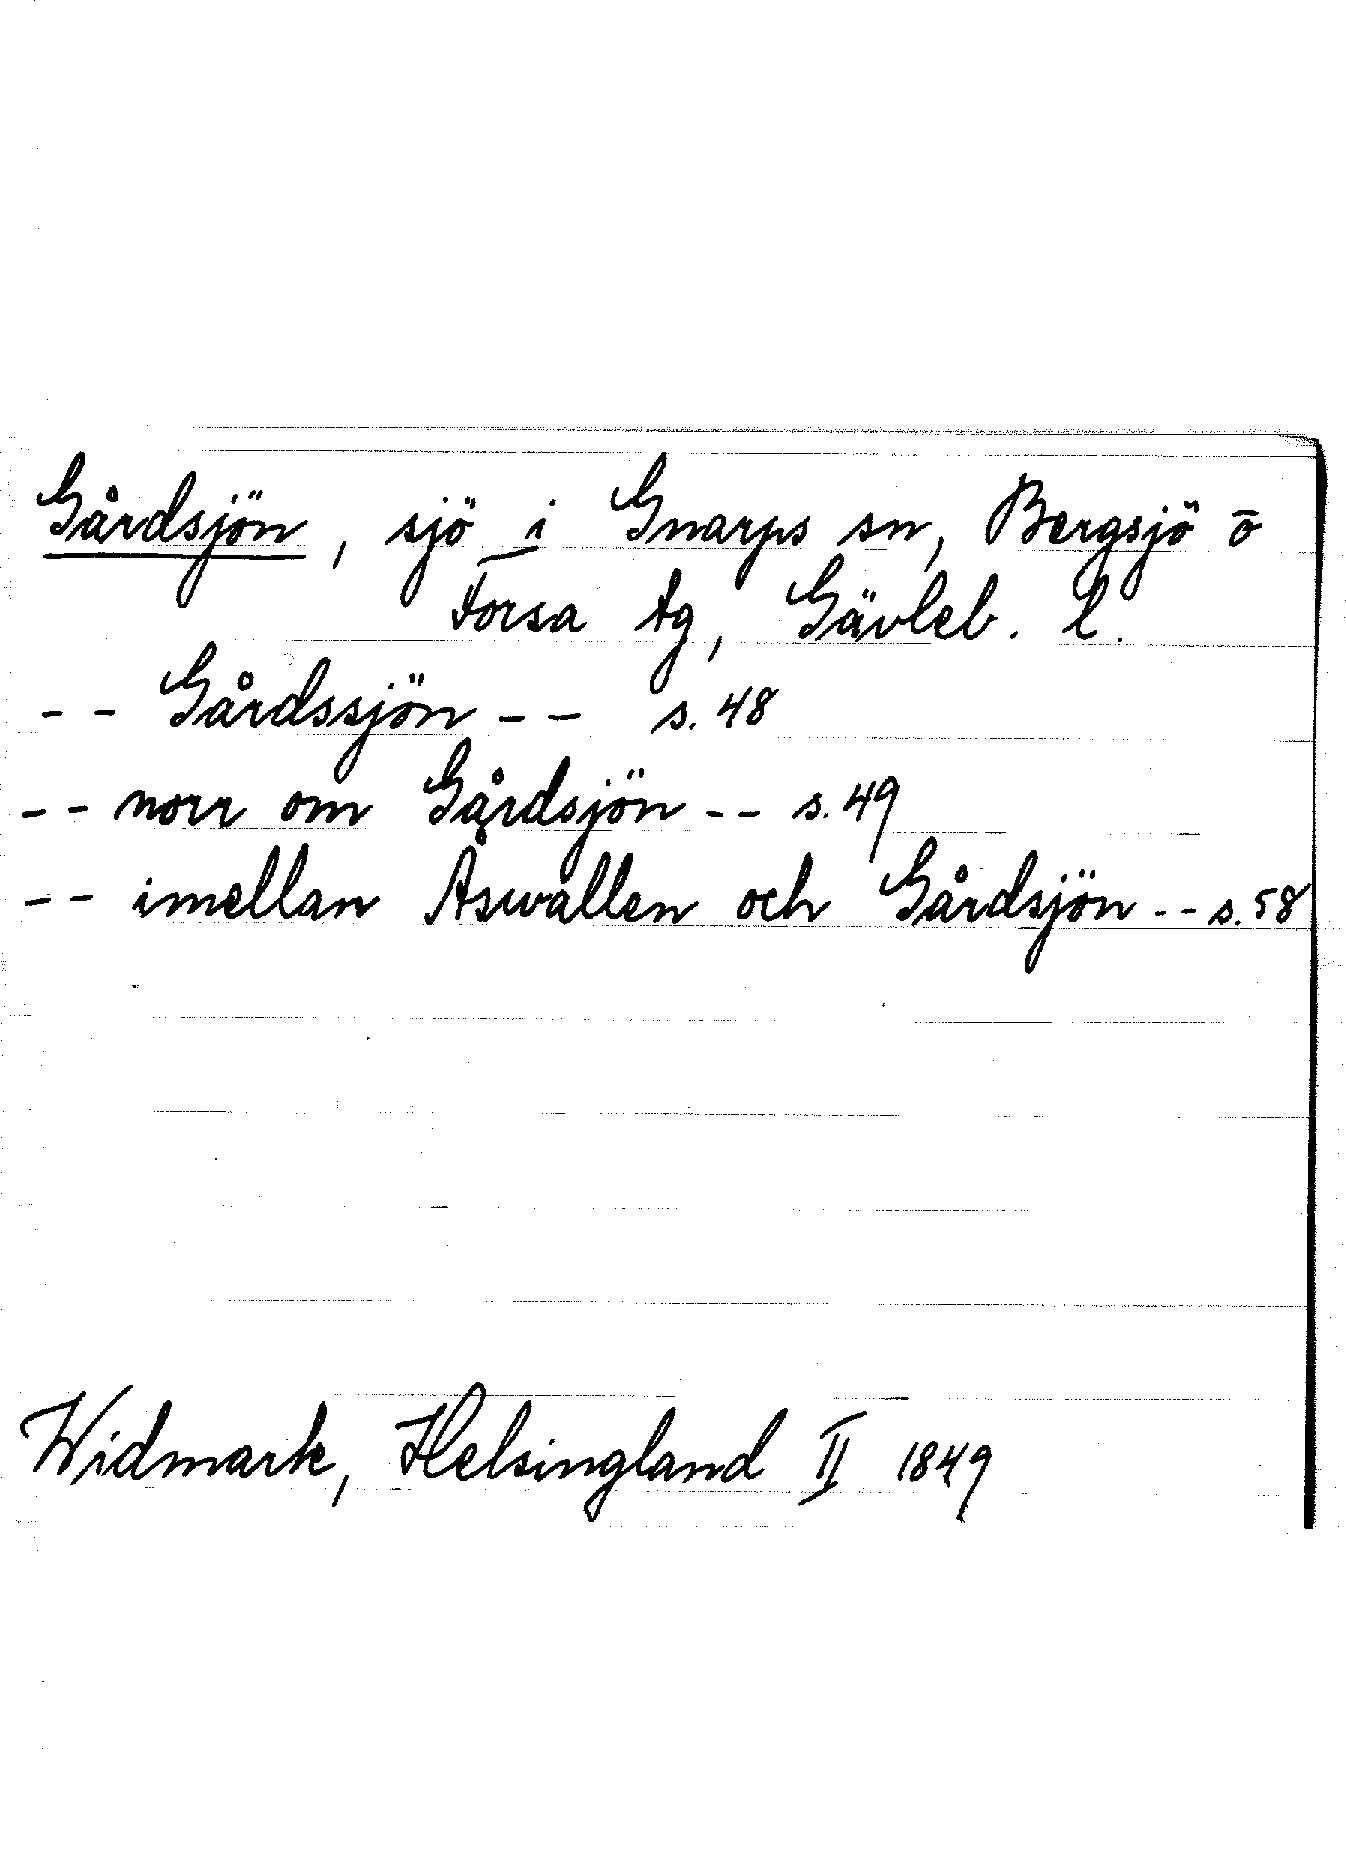 Gårdsjön, sjö i Gnarps sn, Bergsjö o
Forsa tg, Gävleb. l.
-- Gårdssjön -- s. 48
-- norr om Gårdsjön -- s. 49
-- imellan Åswallen och Gårdsjön -- s. 58
Widmark, Helsingland II 1849